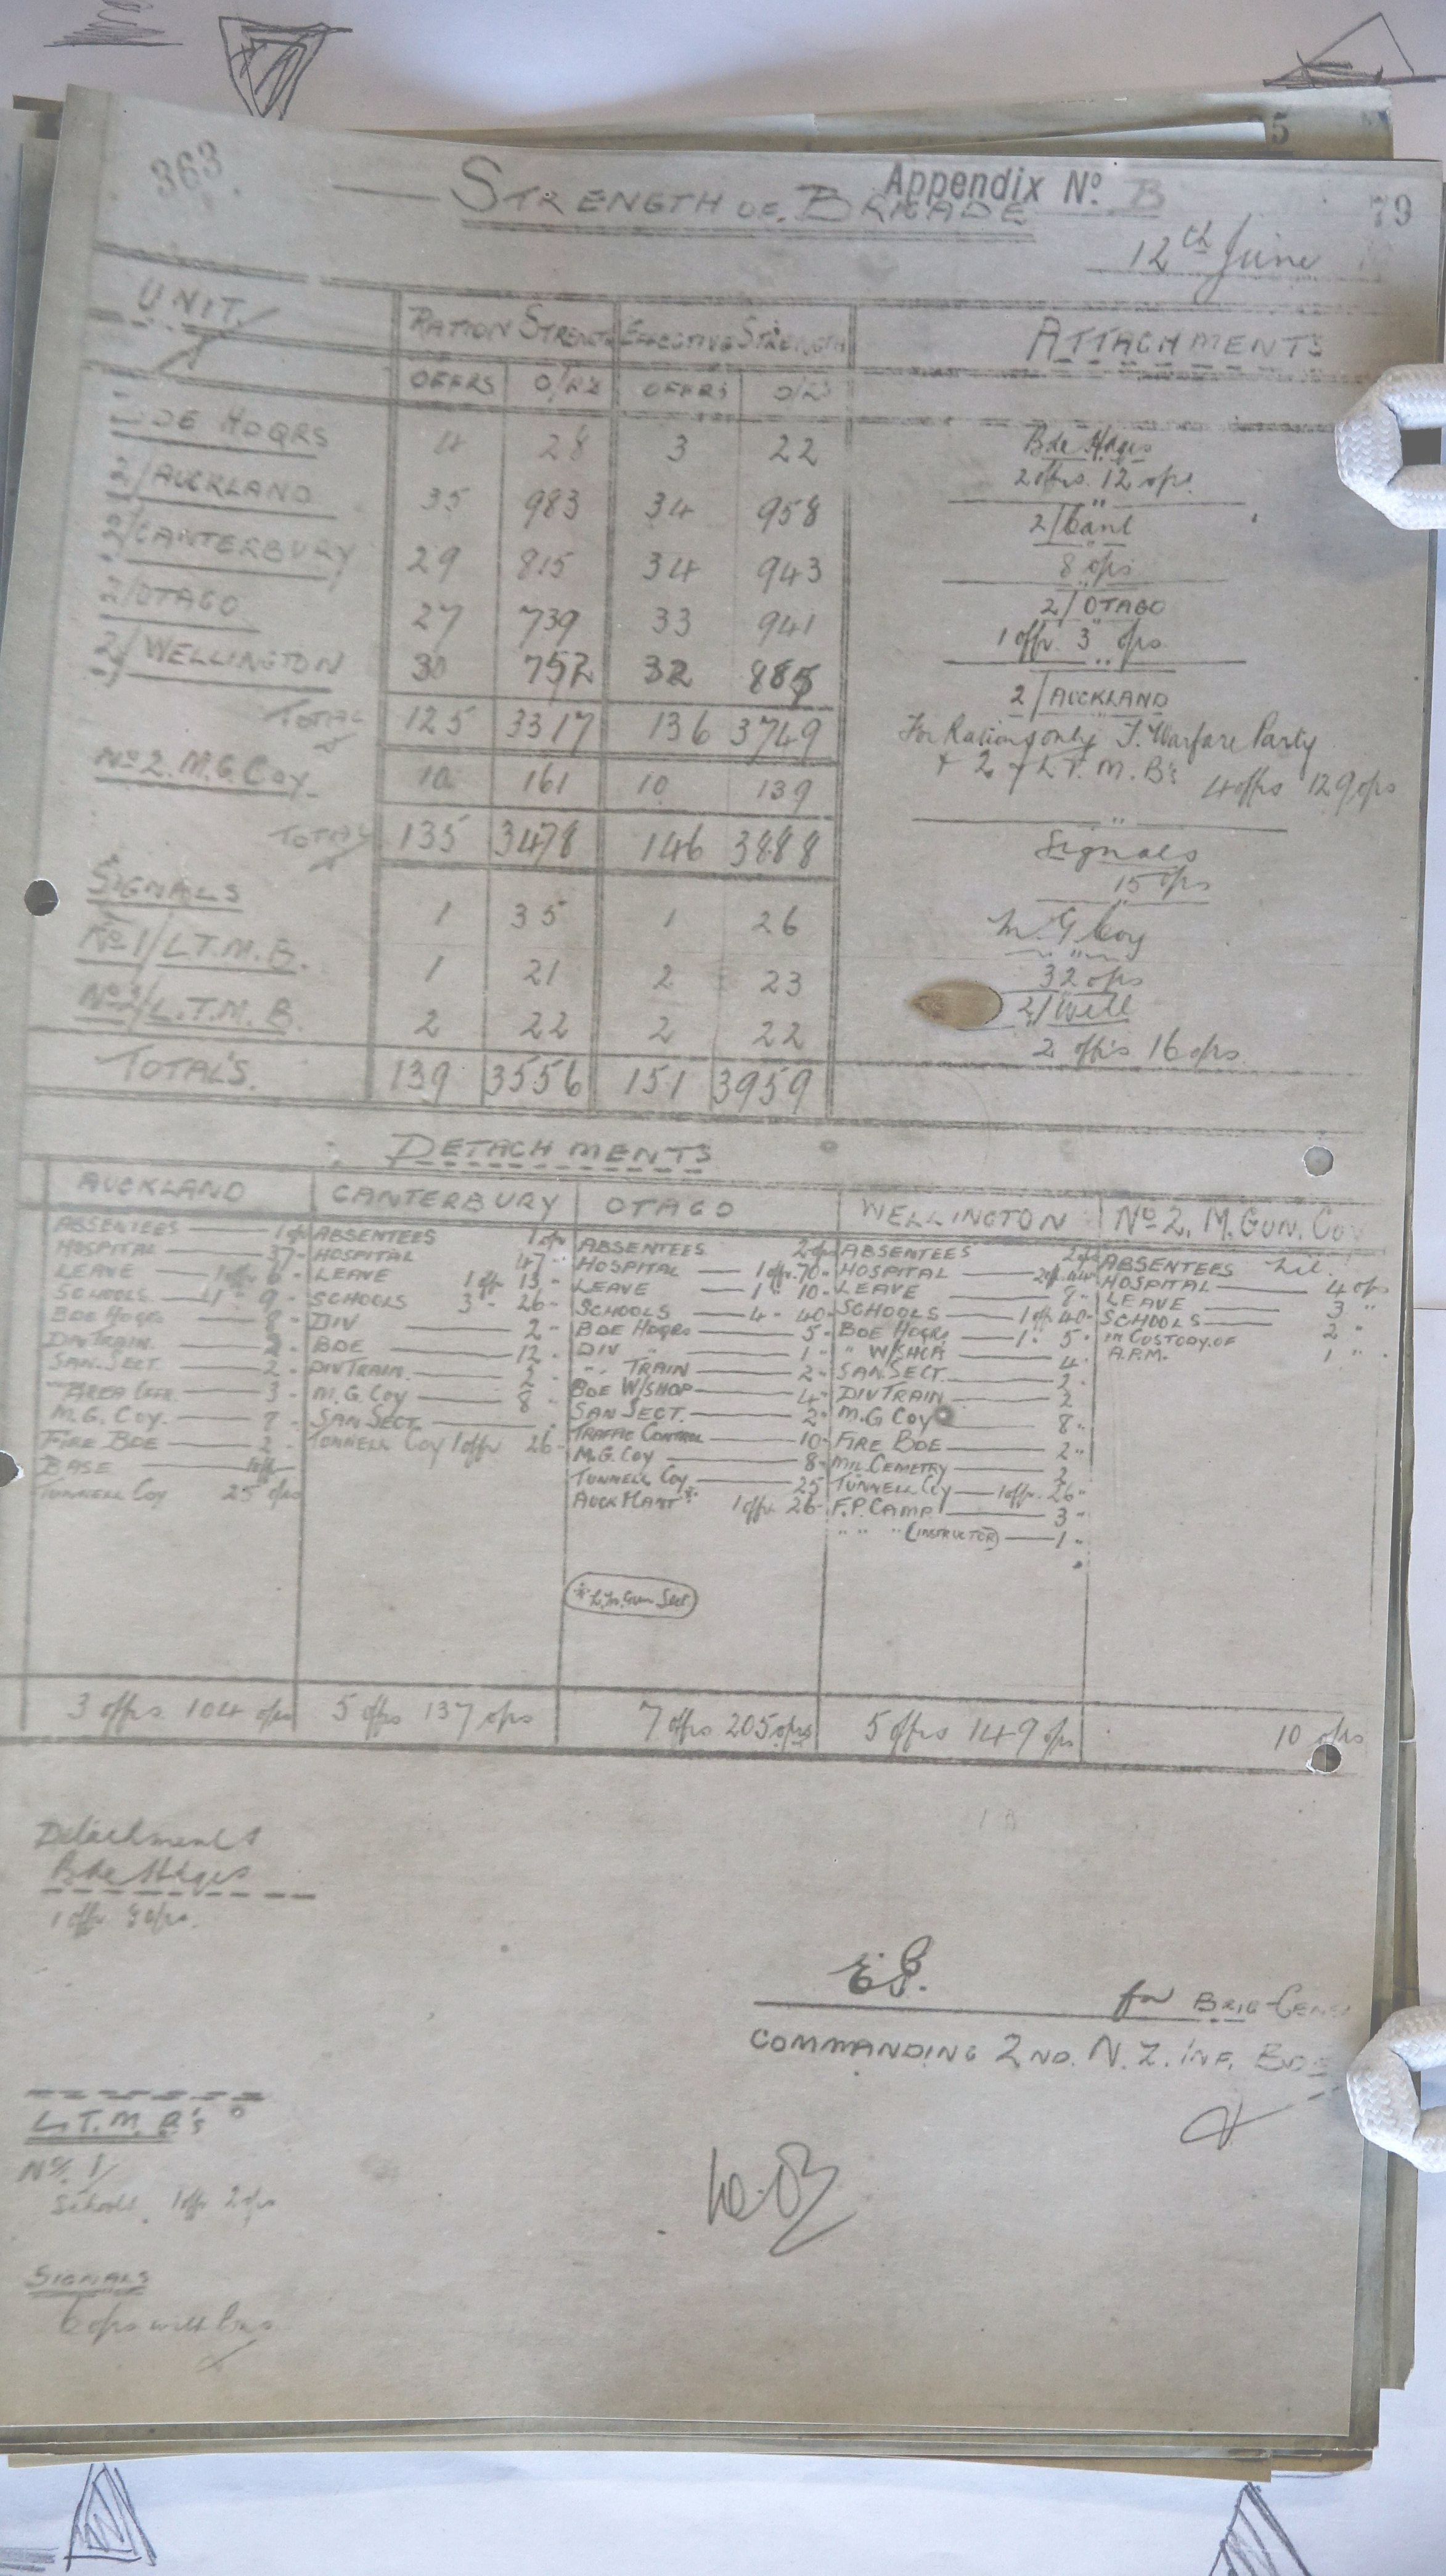 5
363.
Appendix Nº B
79
STRENGTH OF BRIGADE
12th June
UNIT. RATION STRENGTH EFFECTIVE STRENGTH ATTACHMENTS
OFFRS O/R's OFFRS O/R's
BDE HDQRS 4 28 3 22
2/AUCKLAND 35 983 34 958
2/CANTERBURY 29 815 34 943
2/OTAGO 27 739 33 941
2/WELLINGTON 30 752 32 885
TOTAL 125 3317 136 3749
Nº 2. M.G. COY. 10 161 10 139
TOTAL 135 3478 146 3888
SIGNALS 1 35 1 26
Nº 1/L.T.M.B. 1 21 2 23
Nº 2/L.T.M.B. 2 22 2 22
TOTAL'S. 139 3556 151 3959
Bde Hdqrs
2 offrs. 12 ops.
2/Cant
8 ops
2/OTAGO
1 offr. 3 ops.
2/AUCKLAND
For Rations only T. Warfare Party
+ 2 L.T.M.B's 4 offrs 129 ops
Signals
15 ops
M.G Coy
32 ops
2/Well
2 offrs 16 ops.
DETACHMENTS
AUCKLAND
ABSENTEES 1 op
HOSPITAL 37 "
LEAVE 1 offr 6 "
SCHOOLS 1 " 9 "
BDE HDQRS 8 "
DIV TRAIN
SAN. SECT. 2 "
AREA 3 "
M.G. COY. "
FIRE BDE 2 "
BASE 1 off
TUNNELL COY 25 ops
3 offrs 104 ops
CANTERBURY
ABSENTEES 1 op
HOSPITAL 47 "
LEAVE 1 offr 13 "
SCHOOLS 3 " 26 "
DIV 2 "
BDE 12 "
DIV TRAIN 2 "
M.G. COY 8 "
SAN SECT.
TUNNELL COY 1 offr 26 "
5 offrs 137 ops
OTAGO
ABSENTEES 2 ops
HOSPITAL 1 offr. 70 "
LEAVE 1 " 10 "
SCHOOLS 4 " 40 "
BDE HDQRS 5 "
DIV " 1 "
" TRAIN 2 "
BDE W/SHOP 4 "
SAN SECT. 2 "
TRAFFIC CONTROL 10 "
M.G. COY 8 "
TUNNELL COY. 25 "
AUCK MART * 1 offr 26 "
* L. M. Gun Sect
7 offrs 205 ops
WELLINGTON
ABSENTEES 2 ops
HOSPITAL
LEAVE 8 "
SCHOOLS 1 offr 40 "
BDE HDQRS 1 " 5 "
" W/SHOP 4 "
SAN SECT. 2 "
DIV TRAIN 2
M.G COY 8 "
FIRE BDE 2 "
MIL. CEMETRY 2
TUNNELL COY 1 offr. 26 "
F.P. CAMP 3 "
" " " (INSTRUCTOR) 1 "
5 offrs 149 ops
Nº 2. M. GUN. COY
ABSENTEES nil.
HOSPITAL 4 ops
LEAVE 3 "
SCHOOLS 2 "
IN CUSTODY OF
A.P.M. 1 "
10 ops
Detachments
Bde Hdqrs
1 offr ops.
for BRIG-GENL
COMMANDING 2ND. N.Z. INF. BDE
L.T.M.B's
Nº 1/
Schools. 1 offr 2 ops
SIGNALS
6 ops with